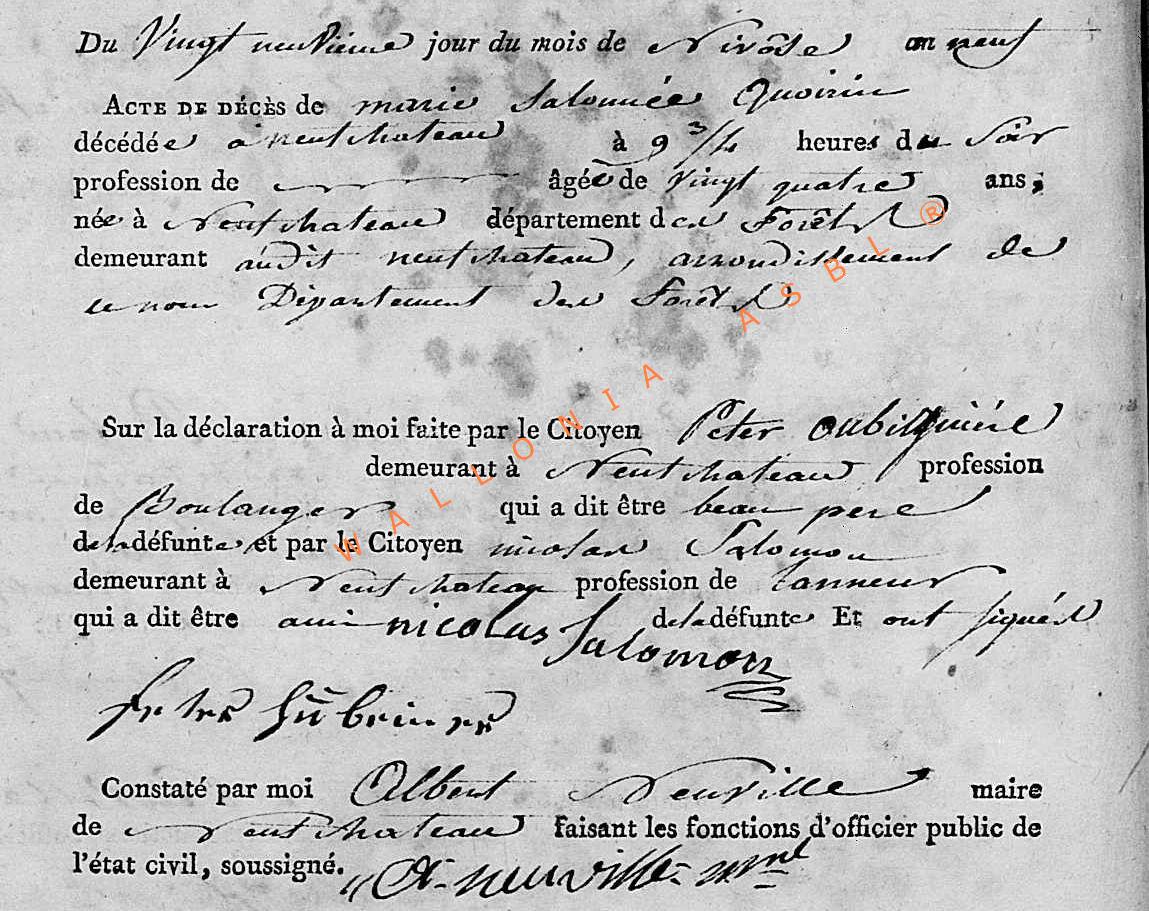 Du Vingt neuvieme jour du mois de Nivôse an neuf
ACTE DE DÉCÈS de marie Salomée Quoirin
décédée a neufchateau à 9 3/4 heures du Soir
profession de âgée de vingt quatre ans,
née à Neufchateau département des Forêts
demeurant audit neufchateau, arrondissement de
ce nom Département des Forêts
Sur la déclaration à moi faite par le Citoyen Peter
demeurant à Neufchateau profession
de Boulanger qui a dit être beau pere
de la défunte et par le Citoyen nicolas Salomon
demeurant à Neufchateau profession de tanneur
qui a dit être ami de la défunte Et ont signés
nicolas Salomon
Peter Hübeiner
Constaté par moi Albert Neuville maire
de Neufchateau faisant les fonctions d'officier public de
l'état civil, soussigné. A. neuville
WALLONIA ASBL ®